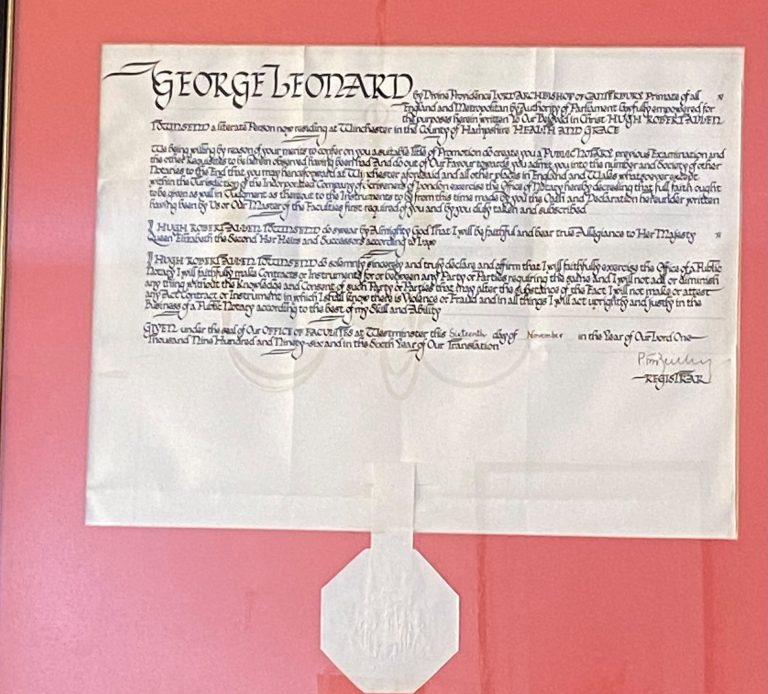 GEORGE LEONARD by Divine Providence LORD ARCHBISHOP OF CANTERBURY Primate of all
England and Metropolitan by Authority of Parliament lawfully empowered for
the purposes herein written To Our Beloved in Christ HUGH ROBERT ALLEN
TOWNSEND a literate Person now residing at Winchester in the County of Hampshire HEALTH AND GRACE
We being willing by reason of your merits to confer on you a suitable Title of Promotion do create you a PUBLIC NOTARY previous Examination and
the other Requisites to be herein observed having been had And do out of Our Favour towards you admit you into the number and Society of other
Notaries to the End that you may henceforward at Winchester aforesaid and all other places in England and Wales whatsoever except
within the Jurisdiction of the Incorporated Company of Scriveners of London exercise the Office of Notary hereby decreeing that full faith ought
to be given as well in Judgment as thereout to the Instruments to be from this time made by you the Oath and Declaration hereunder written
having been by Us or Our Master of the Faculties first required of you and by you duly taken and subscribed
I HUGH ROBERT ALLEN TOWNSEND do swear by Almighty God That I will be faithful and bear true Allegiance to Her Majesty
Queen Elizabeth the Second Her Heirs and Successors according to Law
I HUGH ROBERT ALLEN TOWNSEND do solemnly sincerely and truly declare and affirm that I will faithfully exercise the Office of a Public
Notary I will faithfully make Contracts or Instruments for or between any Party or Parties requiring the same and I will not add or diminish
any thing without the Knowledge and Consent of such Party or Parties that may alter the Substance of the Fact I will not make or attest
any Act Contract or Instrument in which I shall know there is Violence or Fraud and in all things I will act uprightly and justly in the
Business of a Public Notary according to the best of my Skill and Ability
GIVEN under the seal of Our OFFICE OF FACULTIES at Westminster this Sixteenth day of November in the Year of Our Lord One
Thousand Nine Hundred and Ninety-six and in the Sixth Year of Our Translation
REGISTRAR